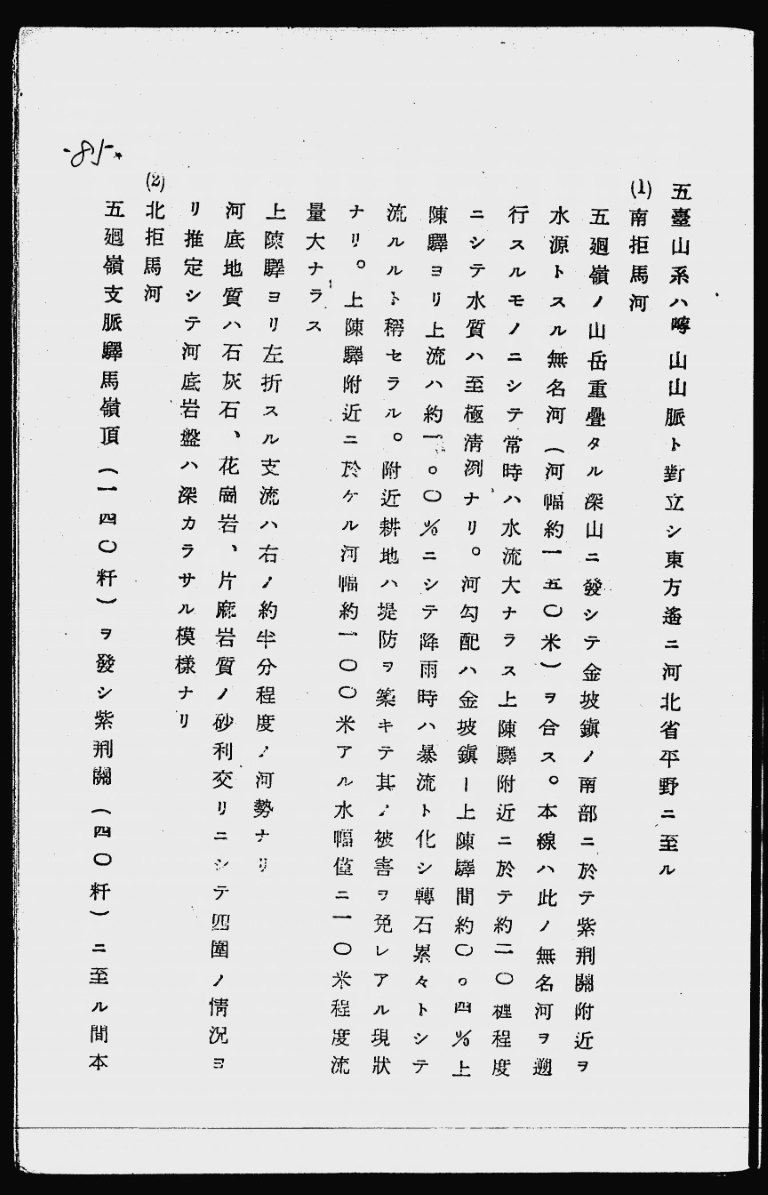 五臺山系ハ崞山山脈ト對立シ東方遙ニ河北省平野ニ至ル
(1) 南拒馬河
五廻嶺ノ山岳重疊タル深山ニ發シテ金坡鎭ノ南部ニ於テ紫荆關附近ヲ
水源トスル無名河(河幅約一五〇米)ヲ合ス。本線ハ此ノ無名河ヲ遡
行スルモノニシテ常時ハ水流大ナラス上陳驛附近ニ於テ約二〇糎程度
ニシテ水質ハ至極淸冽ナリ。河勾配ハ金坡鎭ー上陳驛間約〇。四%上
陳驛ヨリ上流ハ約一。〇%ニシテ降雨時ハ暴流ト化シ轉石累々トシテ
流ルルト稱セラル。附近耕地ハ堤防ヲ築キテ其ノ被害ヲ免レアル現狀
ナリ。上陳驛附近ニ於ケル河幅約一〇〇米アル水幅僅ニ一〇米程度流
量大ナラス
上陳驛ヨリ左折スル支流ハ右ノ約半分程度ノ河勢ナリ
河底地質ハ石灰石、花崗岩、片麻岩質ノ砂利交リニシテ四圍ノ情況ヨ
リ推定シテ河底岩盤ハ深カラサル模樣ナリ
(2) 北拒馬河
五廻嶺支脈驛馬嶺頂(一四〇粁)ヲ發シ紫荆關(四〇粁)ニ至ル間本
-81-